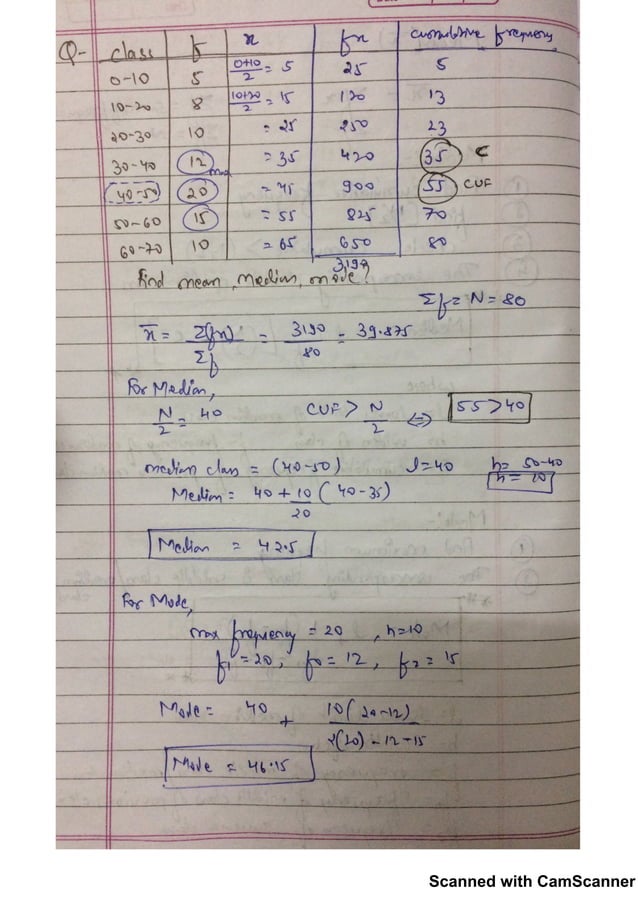 Q- class f x fx cumulative frequency
0-10 5 0+10/2 = 5 25 5
10-20 8 10+20/2 = 15 120 13
20-30 10 = 25 250 23
30-40 12 = 35 420 35 C
40-50 20 = 45 900 55 CUF
50-60 15 = 55 825 70
60-70 10 = 65 650 80
3190
Find mean, median, mode?
Σf = N = 80
x̄ = Σ(fx)/Σf = 3190/80 = 39.875
For Median,
N/2 = 40 CUF > N/2 ⇔ 55 > 40
median class = (40-50) l=40 h= 50-40
h = 10
Median = 40 + 10/20 ( 40-35)
Median = 42.5
For Mode,
max frequency = 20 , h=10
f1 = 20, f0 = 12, f2 = 15
Mode = 40 + 10(20-12)/2(20)-12-15
Mode = 46.15
Scanned with CamScanner